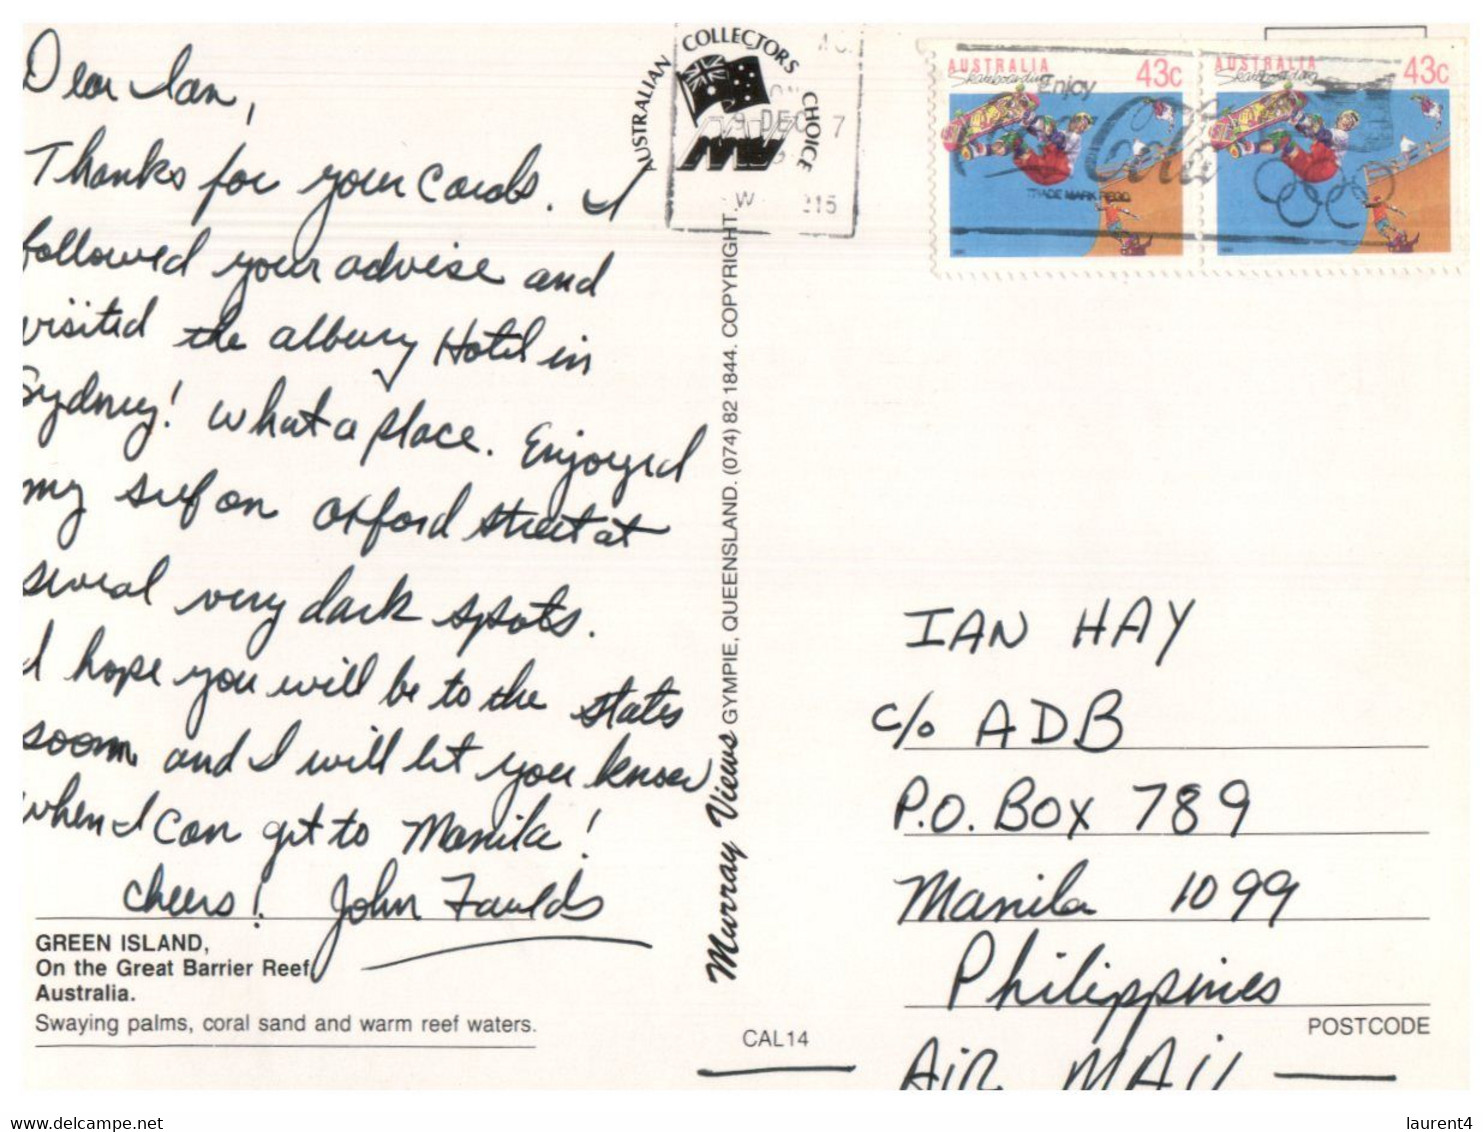 Dear Ian,
Thanks for your cards. I
followed your advise and
visited the albury Hotel in
Sydney! what a place. Enjoyed
my self on oxford street at
several very dark spots.
I hope you will be to the states
soon and I will let you know
when I can get to Manila!
cheers! John Faulds
GREEN ISLAND,
On the Great Barrier Reef,
Australia.
Swaying palms, coral sand and warm reef waters.
AUSTRALIAN COLLECTORS CHOICE
9 DEC
W
215
Murray Views GYMPIE, QUEENSLAND. (074) 82 1844. COPYRIGHT.
CAL14
AUSTRALIA 43c
Skateboarding
AUSTRALIA 43c
Skateboarding
Enjoy
Coca-Cola
TRADE MARK REGD
IAN HAY
c/o ADB
P.O. BOX 789
Manila 1099
Philippines
POSTCODE
AIR MAIL
www.delcampe.net
laurent4